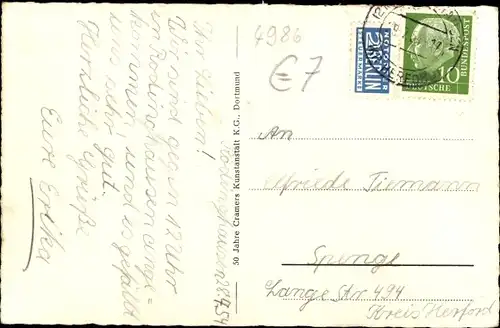 Ihr Lieben!
Wir sind gegen 12 Uhr
in Rödinghausen ange=
kommen und es gefällt
uns sehr gut.
Herzliche Grüße
Eure Erika
Rödinghausen 28.7.54
50 Jahre Cramers Kunstanstalt K.G., Dortmund
4986
€7
NOTOPFER
2 BERLIN
STEUERMARKE
10
DEUTSCHE
BUNDESPOST
An
Elfriede Tiemann
Spenge
Lange Str. 494
Kreis Herford